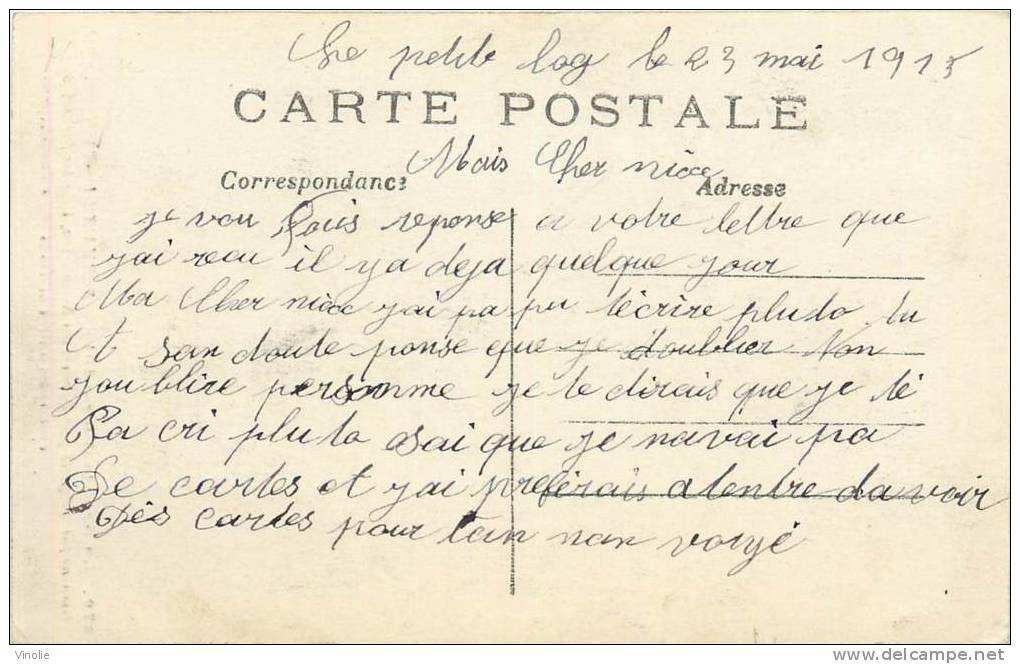 petite log le 23 mai 1915
CARTE POSTALE
Mais Cher nièce
Correspondance
Adresse
je vou fouis reponse a votre lettre que
jai recu il ya deja quelque jour
Ma Cher nièce jai pa pu técrire pluto tu
et san doute ponse que je toublier Non
joublire personne je te dirais que je té
Pa cri pluto sai que je navai pa
De cartes et jai preferais atentre davoir
Dés cartes pour tan nan voryé
Vinolie
delcampe.net